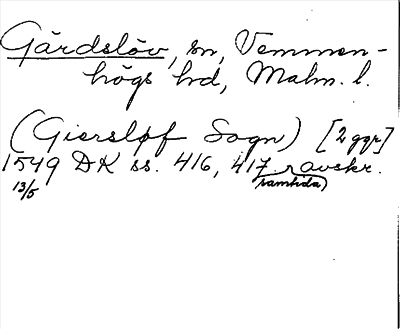 Gärdslöv, sn, Vemmen-
högs hd, Malm. l.
(Giersløf Sogn) [2 ggr]
1549 DK ss. 416, 417 ravskr.
13/5 samtida)